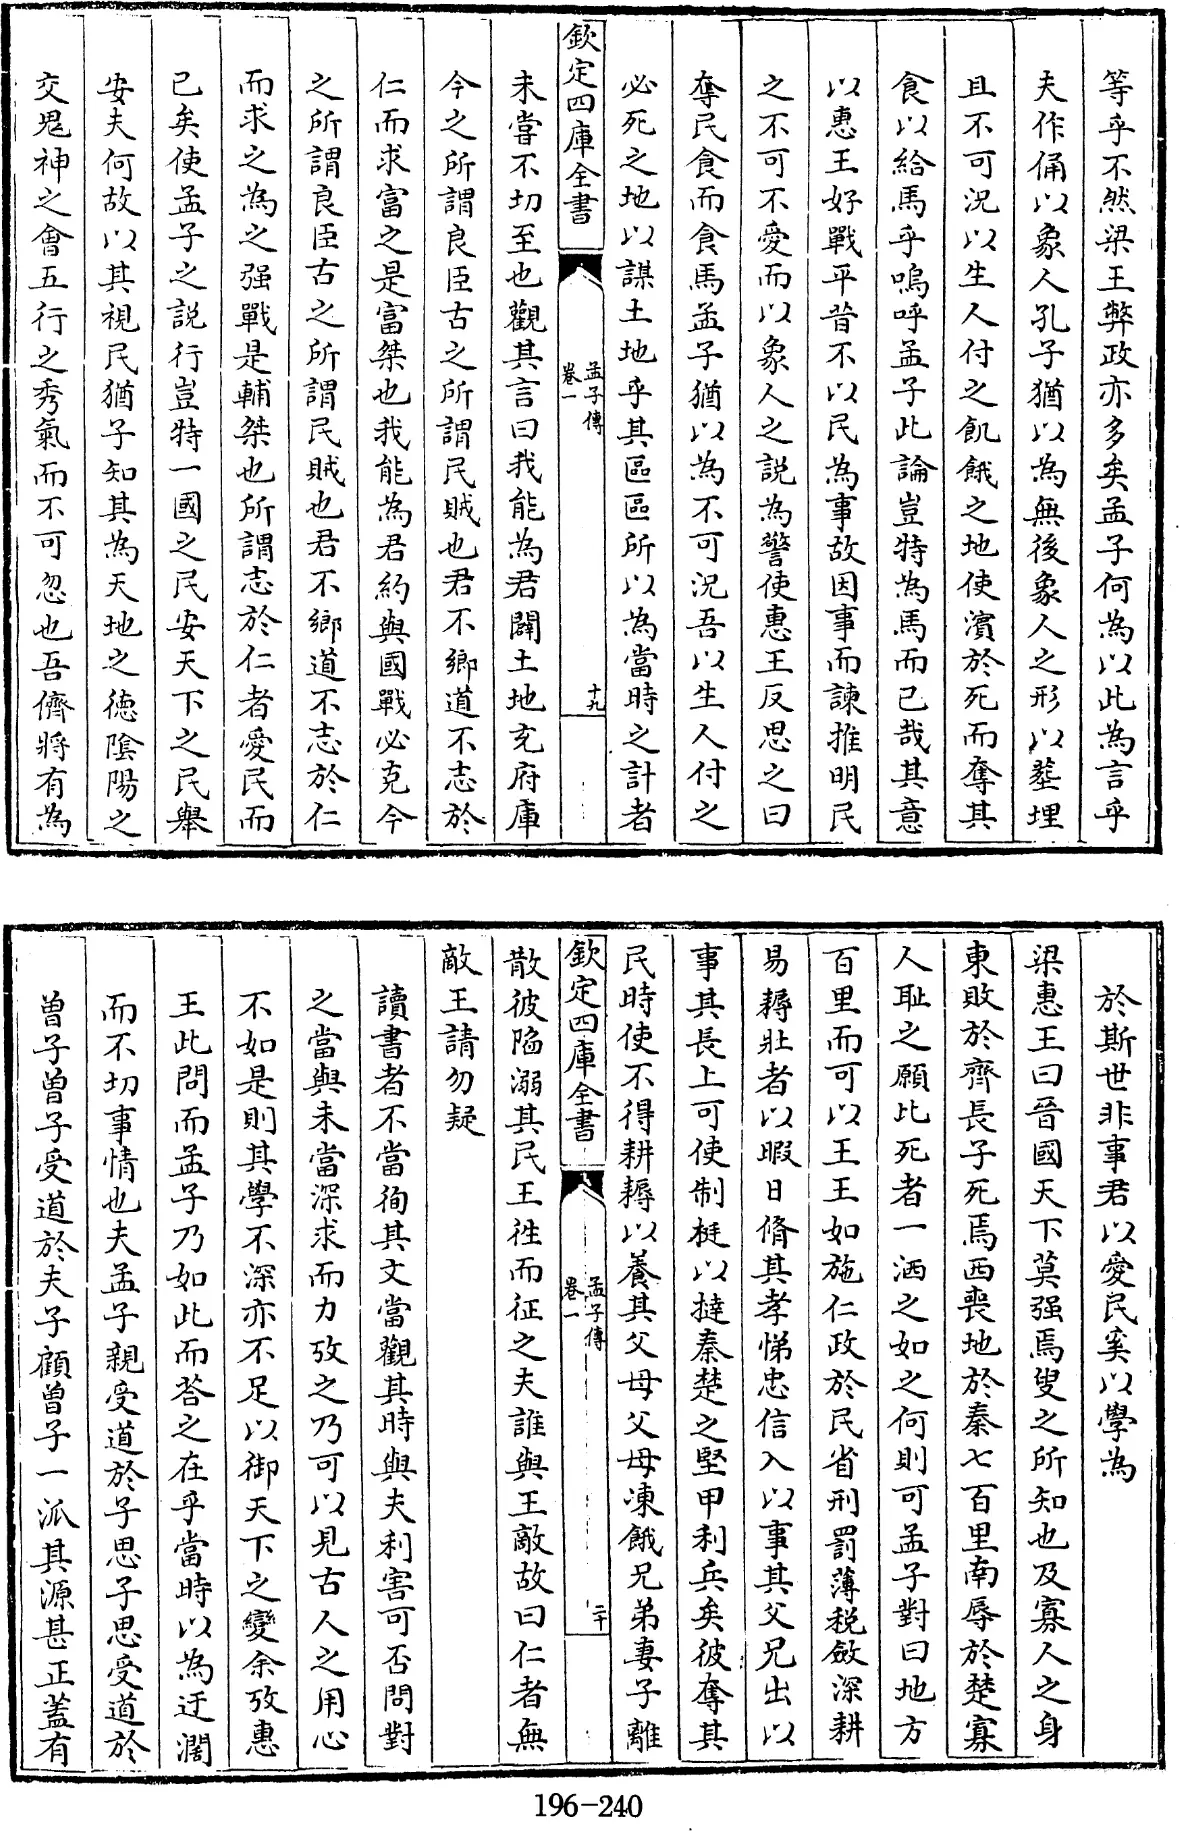 等乎不然梁王弊政亦多矣孟子何為以此為言乎
夫作俑以象人孔子猶以為無後象人之形以塟埋
且不可況以生人付之飢餓之地使濱於死而奪其
食以給馬乎嗚呼孟子此論豈特為馬而已哉其意
以惠王好戰平昔不以民為事故因事而諫推明民
之不可不愛而以象人之説為警使惠王反思之曰
奪民食而食馬孟子猶以為不可況吾以生人付之
必死之地以謀土地乎其區區所以為當時之計者
欽定四庫全書
孟子傳
卷一
十九
未嘗不切至也觀其言曰我能為君闢土地充府庫
今之所謂良臣古之所謂民賊也君不鄉道不志於
仁而求富之是富桀也我能為君約與國戰必克今
之所謂良臣古之所謂民賊也君不鄉道不志於仁
而求之為之强戰是輔桀也所謂志於仁者愛民而
已矣使孟子之説行豈特一國之民安天下之民舉
安夫何故以其視民猶子知其為天地之徳隂陽之
交鬼神之會五行之秀氣而不可忽也吾儕將有為
於斯世非事君以愛民奚以學為
梁惠王曰晉國天下莫强焉叟之所知也及寡人之身
東敗於齊長子死焉西喪地於秦七百里南辱於楚寡
人恥之願比死者一洒之如之何則可孟子對曰地方
百里而可以王王如施仁政於民省刑罰薄税斂深耕
易耨壯者以暇日脩其孝悌忠信入以事其父兄出以
事其長上可使制梃以撻秦楚之堅甲利兵矣彼奪其
民時使不得耕耨以養其父母父母凍餓兄弟妻子離
欽定四庫全書
孟子傳
卷一
二十
散彼陷溺其民王徃而征之夫誰與王敵故曰仁者無
敵王請勿疑
讀書者不當徇其文當觀其時與夫利害可否問對
之當與未當深求而力攷之乃可以見古人之用心
不如是則其學不深亦不足以御天下之變余攷惠
王此問而孟子乃如此而荅之在乎當時以為迂濶
而不切事情也夫孟子親受道於子思子思受道於
曽子曽子受道於夫子顧曽子一泒其源甚正蓋有
196-240